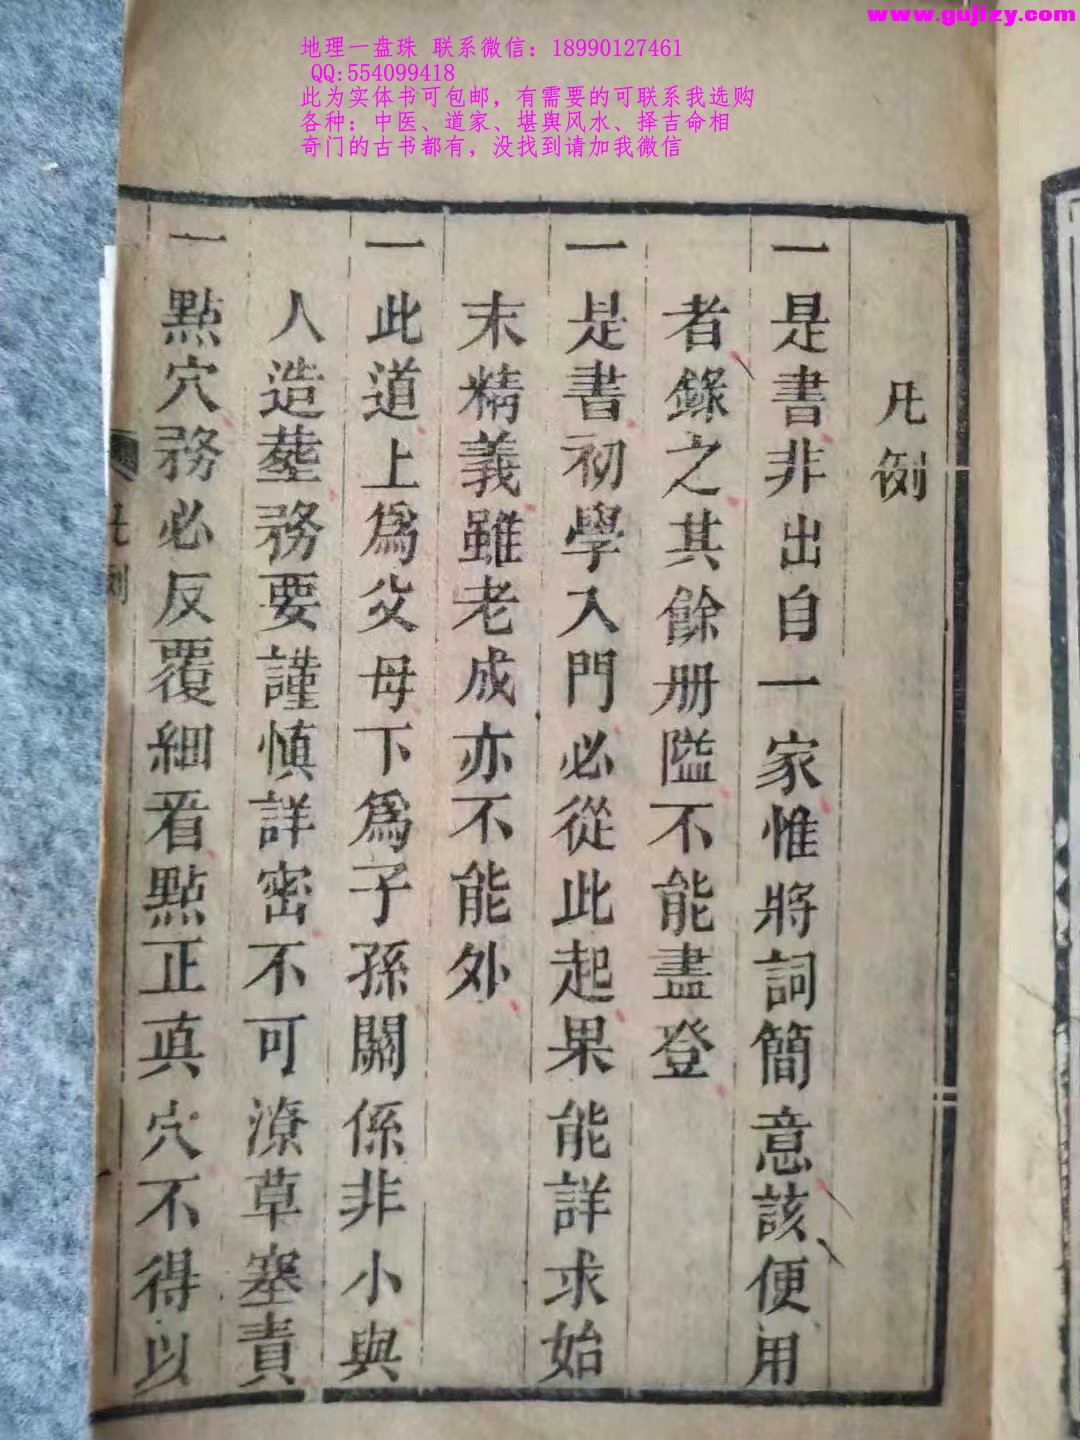 www.gujlzy.com
地理一盘珠 联系微信：18990127461
QQ:554099418
此为实体书可包邮，有需要的可联系我选购
各种：中医、道家、堪舆风水、择吉命相
奇门的古书都有，没找到请加我微信
凡例
一是書非出自一家惟將詞簡意該便用
者錄之其餘册隘不能盡登
一是書初學入門必從此起果能詳求始
末精義雖老成亦不能外
一此道上爲父母下爲子孫關係非小與
人造塟務要謹慎詳密不可潦草塞責
一點穴務必反覆細看點正真穴不得以
凡例